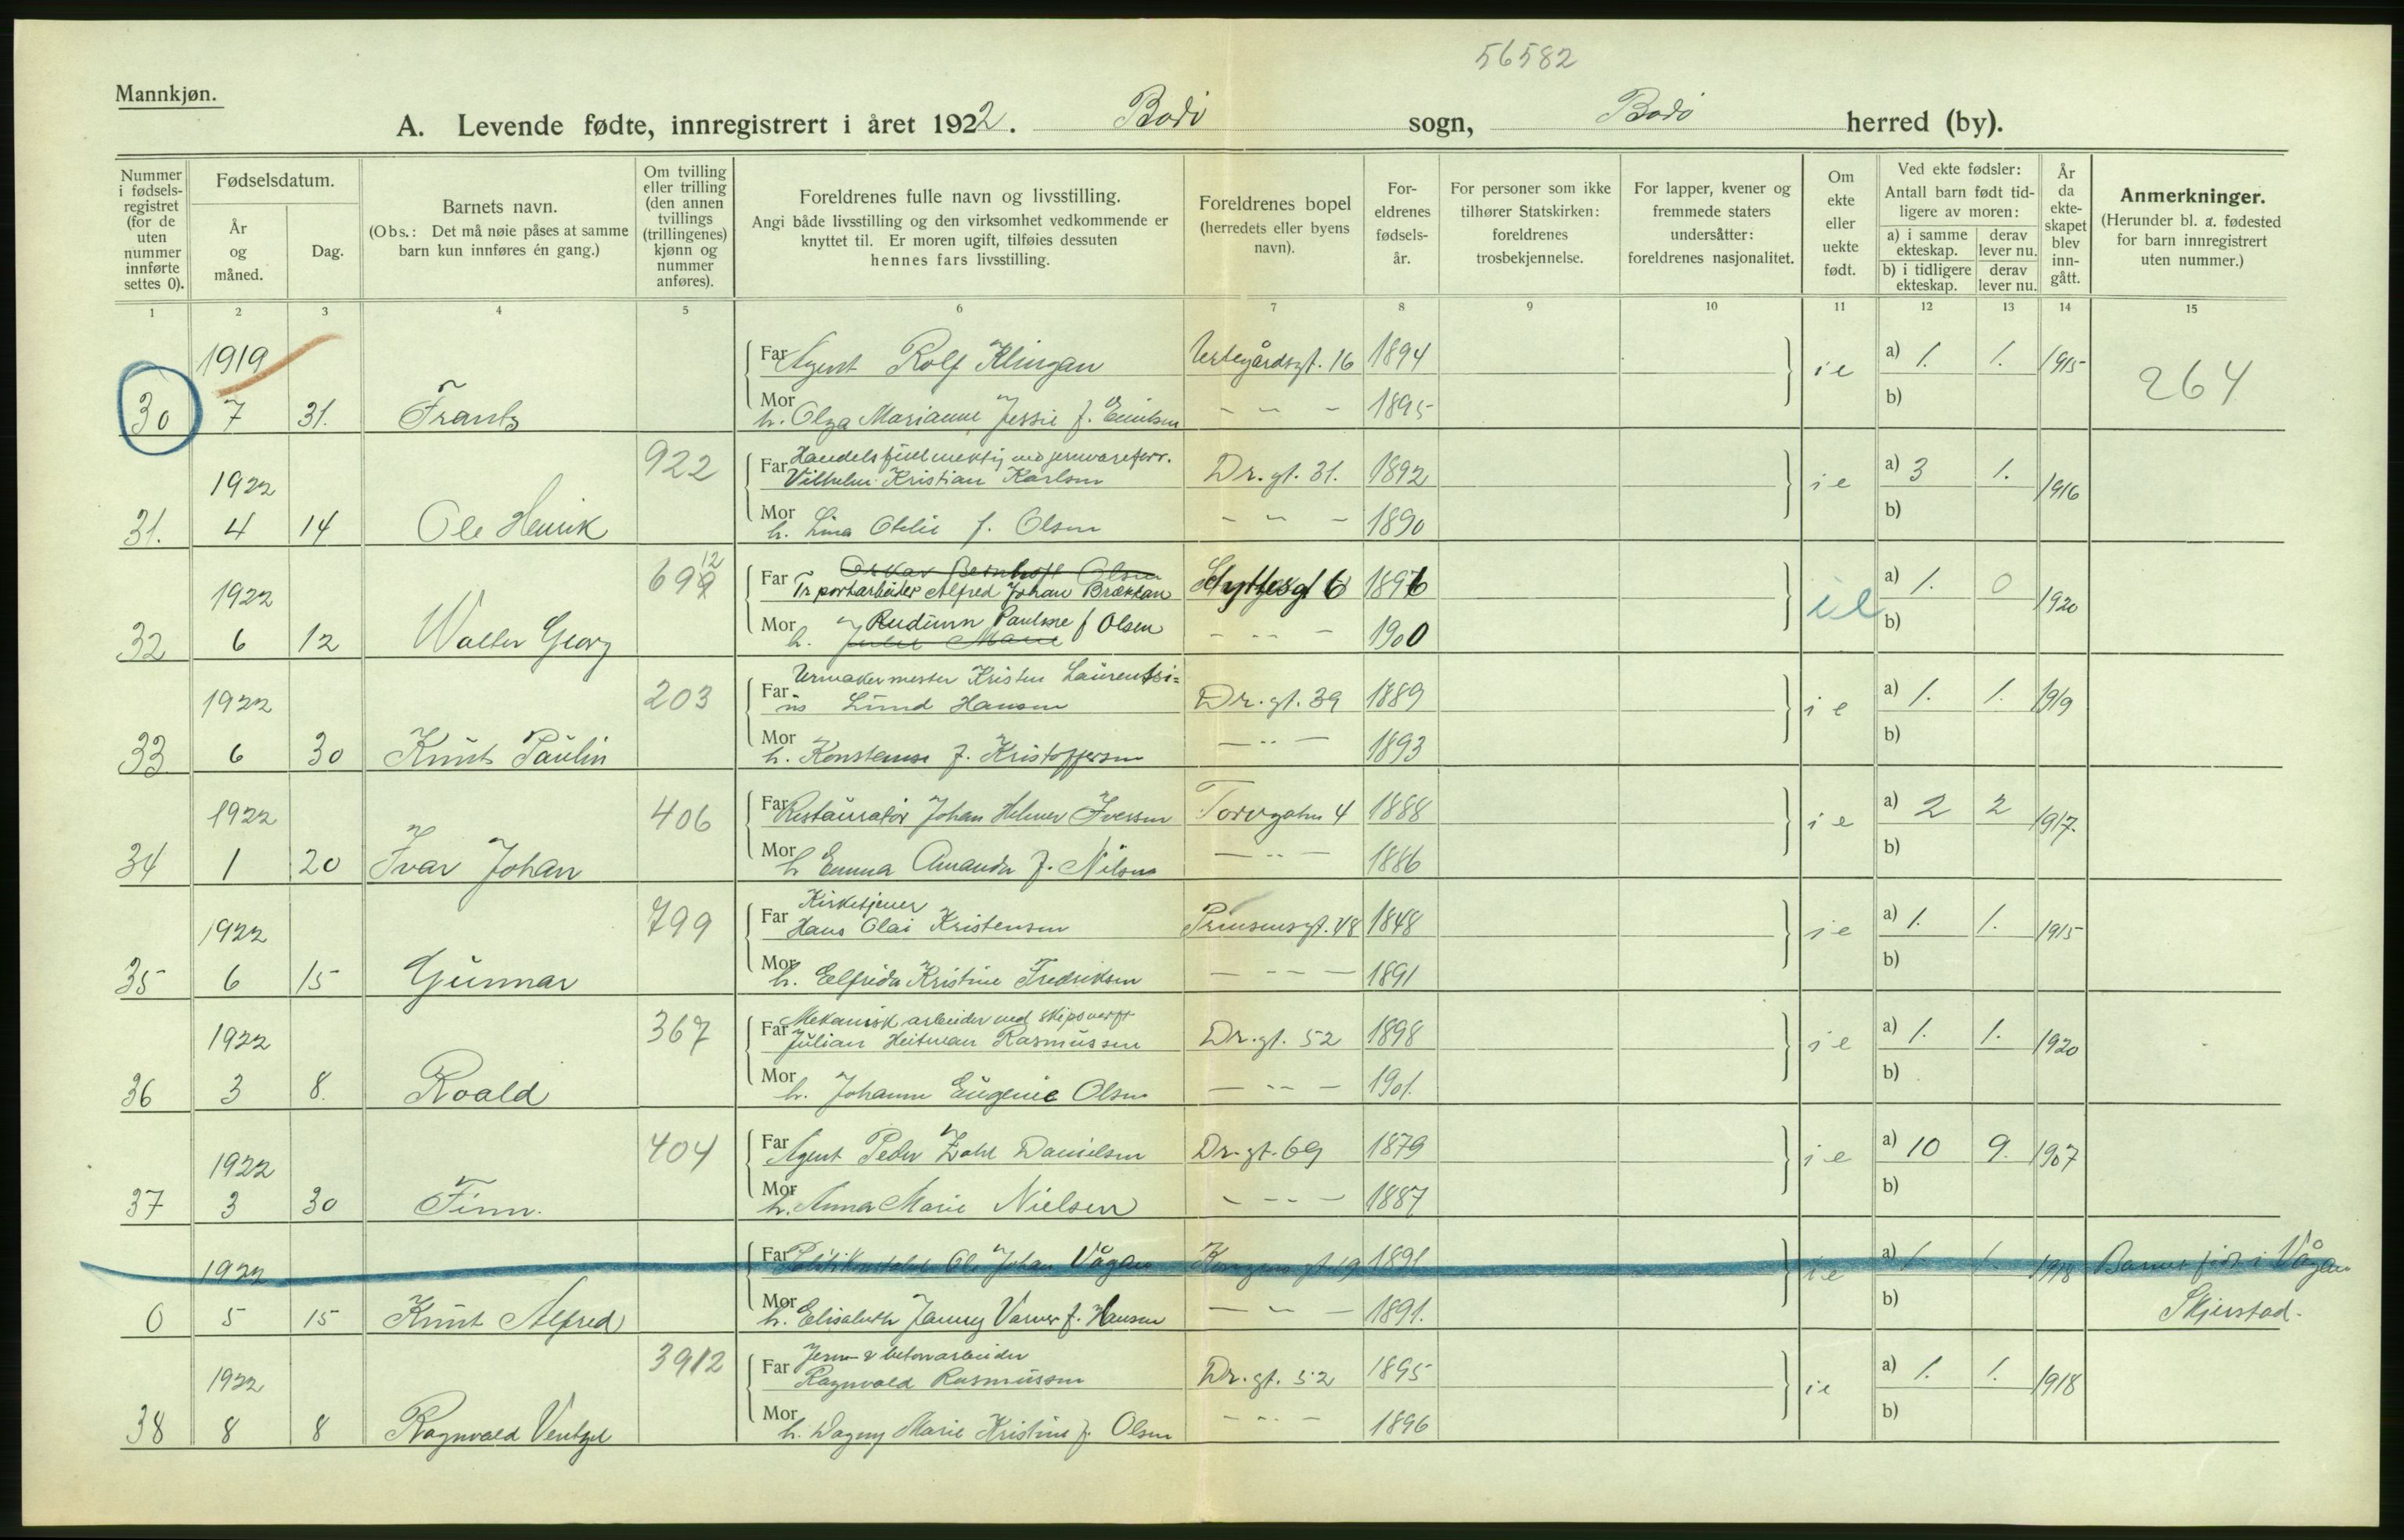 56582
Mannkjøn.
A. Levende fødte, innregistrert i året 1922. Bodø sogn, Bodø herred (by).
Nummer i fødsels-registret (for de uten nummer innførte settes 0).
Fødselsdatum.
År og måned.
Dag.
Barnets navn.
(Obs.: Det må nøie påses at samme barn kun innføres én gang.)
Om tvilling eller trilling (den annen tvillings (trillingenes) kjønn og nummer anføres).
Foreldrenes fulle navn og livsstilling.
Angi både livsstilling og den virksomhet vedkommende er knyttet til. Er moren ugift, tilføies dessuten hennes fars livsstilling.
Foreldrenes bopel (herredets eller byens navn).
For-eldrenes fødsels-år.
For personer som ikke tilhører Statskirken: foreldrenes trosbekjennelse.
For lapper, kvener og fremmede staters undersåtter: foreldrenes nasjonalitet.
Om ekte eller uekte født.
Ved ekte fødsler: Antall barn født tid-ligere av moren:
a) i samme ekteskap.
derav lever nu.
b) i tidligere ekteskap.
derav lever nu.
År da ekte-skapet blev inn-gått.
Anmerkninger.
(Herunder bl. a. fødested for barn innregistrert uten nummer.)
1 2 3 4 5 6 7 8 9 10 11 12 13 14 15
1919
Far Agent Rolf Klingan 1894 ie a) 1. 1. 1915 264
30 7 31. Frantz
Mor h. Olga Marianne Jessie f. - - - 1895 b)
922
Far Handelsfullmektig ved jernvareforr.
1922 Vilhelm Kristian Karlsen Dr. gt. 31. 1892 ie a) 3 1. 1916
31. 4 14 Ole Henrik
Mor h. Lina Otelie f. Olsen - - - 1890 b)
6992 12
Oskar Bernhoft Olsen
1922 Far Tr portarbeider Alfred Johan Brækkan Hyttesgt 6 1896 ie a) 1. 0 1920
Mor h. Rudinn Pauline f Olsen - - - 1900 b)
Marie
32 6 12 Walter Georg
203
Far Urmakermester Kristen Laurentsi=
1922 us Lund Hansen Dr. gt. 39 1889 ie a) 1. 1. 1919
33 6 30 Knut Paulin
Mor h. Konstanse f. Kristoffersen - - - 1893 b)
406
1922 Far Restauratør Johan Helmer Iversen Torvgaten 4 1888 ie a) 2 2 1917.
34 1 20 Ivar Johan
Mor h Emma Amanda f. Nilsen - - - 1886 b)
799
Far Kirketjener
1922 Hans Olai Kristensen Prinsensgt. 48 1848 ie a) 1. 1. 1915
35 6 15 Gunnar
Mor h. Elfrida Kristine Fredriksen - - - 1891 b)
367
Far Mekanisk arbeider ved skipsverft
1922 Julian Heitman Rasmussen Dr. gt. 52 1898 ie a) 1. 1. 1920
36 3 8. Roald
Mor h. Johanne Eugenie Olsen - - - 1901. b)
404
1922 Far Agent Peder Zahl Danielsen Dr. gt. 69 1879 ie a) 10 9. 1907
37 3 30 Finn.
Mor h. Anna Marie Nielsen - - - 1887 b)
1922 Far Politikonstabel Ole Johan Vågan Kongens gt 19 1891 ie a) 1. 1. 1918 Barnet født i Vågan
0 5 15 Knut Alfred
Mor h. Elisabeth Jenny Varver f. Hansen - - - 1891. b) Skjerstad.
3912
Far Jern- & betonarbeider
1922 Ragnvald Rasmussen Dr. gt. 52 1895 ie a) 1. 1. 1918
38 8 8 Ragnvald Ventzel
Mor h. Dagny Marie Kristine f. Olsen - - - 1896 b)